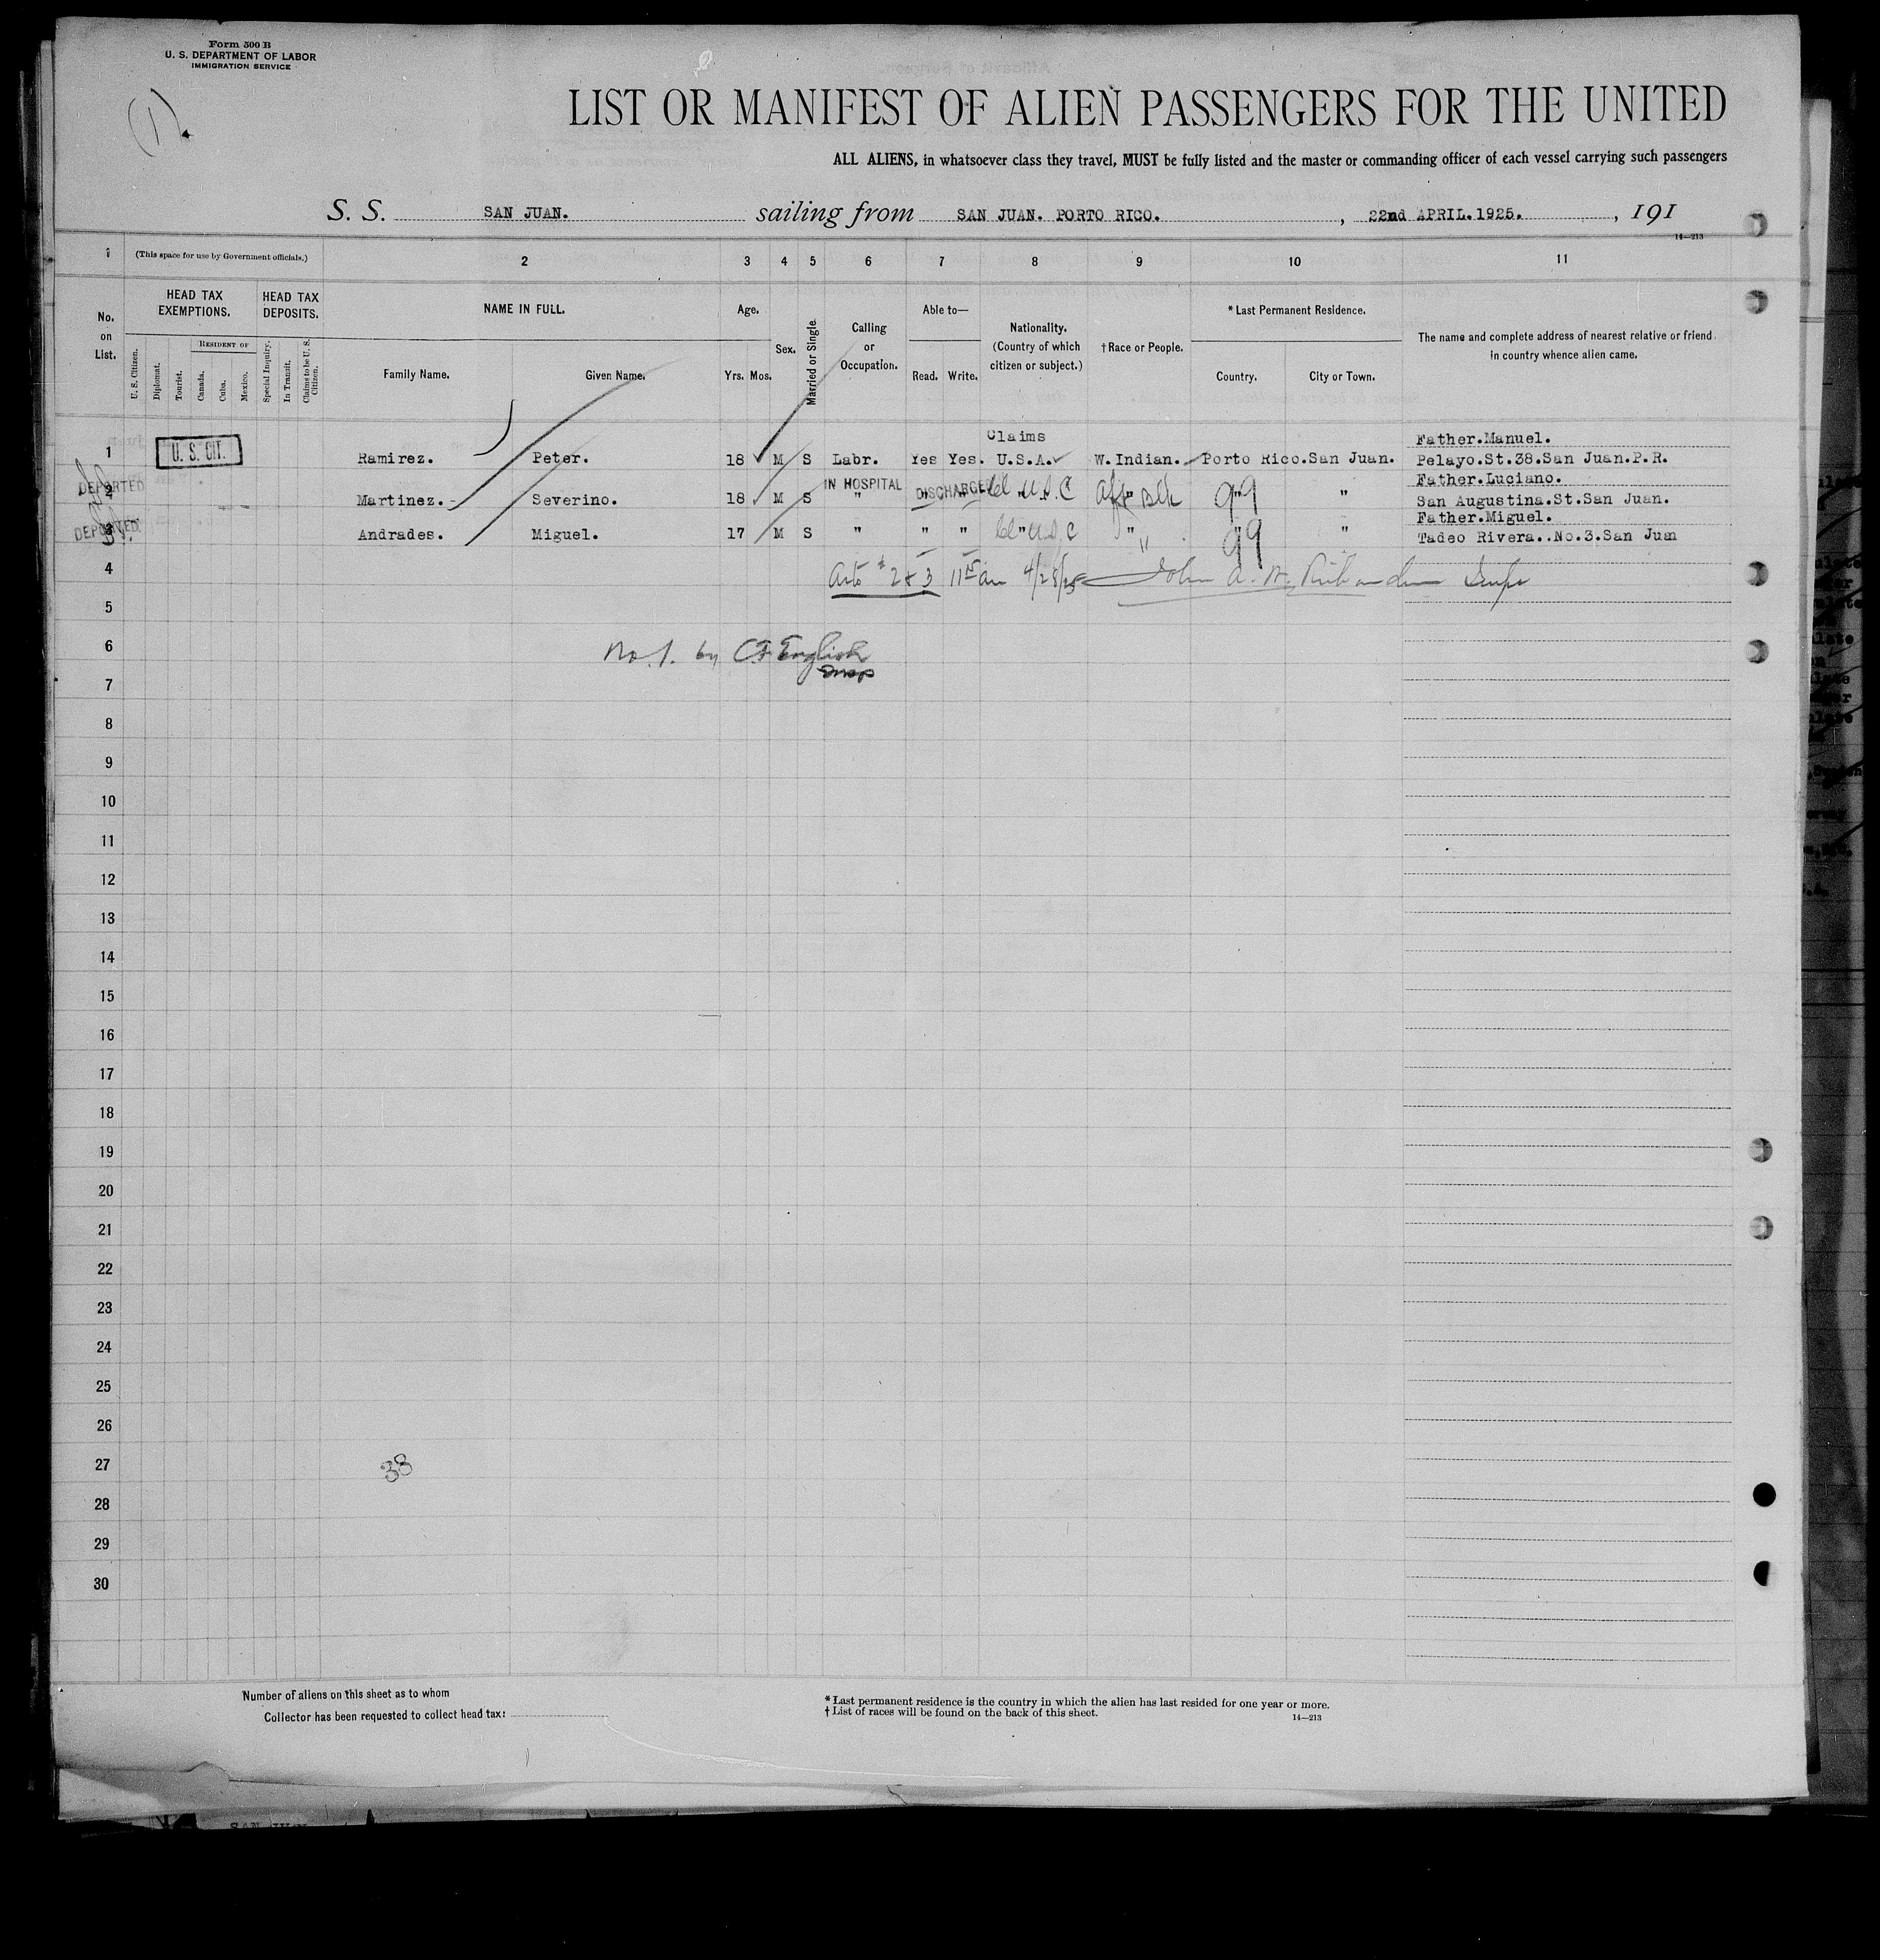 Form 500 B
U. S. DEPARTMENT OF LABOR
IMMIGRATION SERVICE
(1)
LIST OR MANIFEST OF ALIEN PASSENGERS FOR THE UNITED
ALL ALIENS, in whatsoever class they travel, MUST be fully listed and the master or commanding officer of each vessel carrying such passengers
S. S. SAN JUAN. sailing from SAN JUAN. PORTO RICO. , 22nd APRIL.1925. , 191
14—213
1 (This space for use by Government officials.) 2 3 4 5 6 7 8 9 10 11
No. on List.
HEAD TAX EXEMPTIONS.
HEAD TAX DEPOSITS.
U. S. Citizen. Diplomat. Tourist. RESIDENT OF Canada. Cuba. Mexico. Special Inquiry. In Transit. Claims to be U. S. Citizen.
NAME IN FULL.
Family Name. Given Name.
Age. Yrs. Mos.
Sex.
Married or Single.
Calling or Occupation.
Able to— Read. Write.
Nationality. (Country of which citizen or subject.)
†Race or People.
*Last Permanent Residence. Country. City or Town.
The name and complete address of nearest relative or friend in country whence alien came.
Claims Father.Manuel.
1 U. S. CIT. Ramirez. Peter. 18 M S Labr. Yes Yes. U.S.A. W.Indian. Porto Rico.San Juan. Pelayo.St.38.San Juan.P.R.
DEPORTED IN HOSPITAL DISCHARGED Father.Luciano.
2 Martinez. Severino. 18 M S " " " " Cl U.S.C Afr Blk " 99 " San Augustina.St.San Juan.
DEPORTED. Father.Miguel.
3 Andrades. Miguel. 17 M S " " " " Cl U.S.C " " " 99 " Tadeo Rivera..No.3.San Juan
4 2 & 3 11 am 4/28/25 John A. Insp
5
6 No. 1. by C F English
Insp
7
8
9
10
11
12
13
14
15
16
17
18
19
20
21
22
23
24
25
26
27 38
28
29
30
Number of aliens on this sheet as to whom
Collector has been requested to collect head tax:
* Last permanent residence is the country in which the alien has last resided for one year or more.
† List of races will be found on the back of this sheet.
14—213